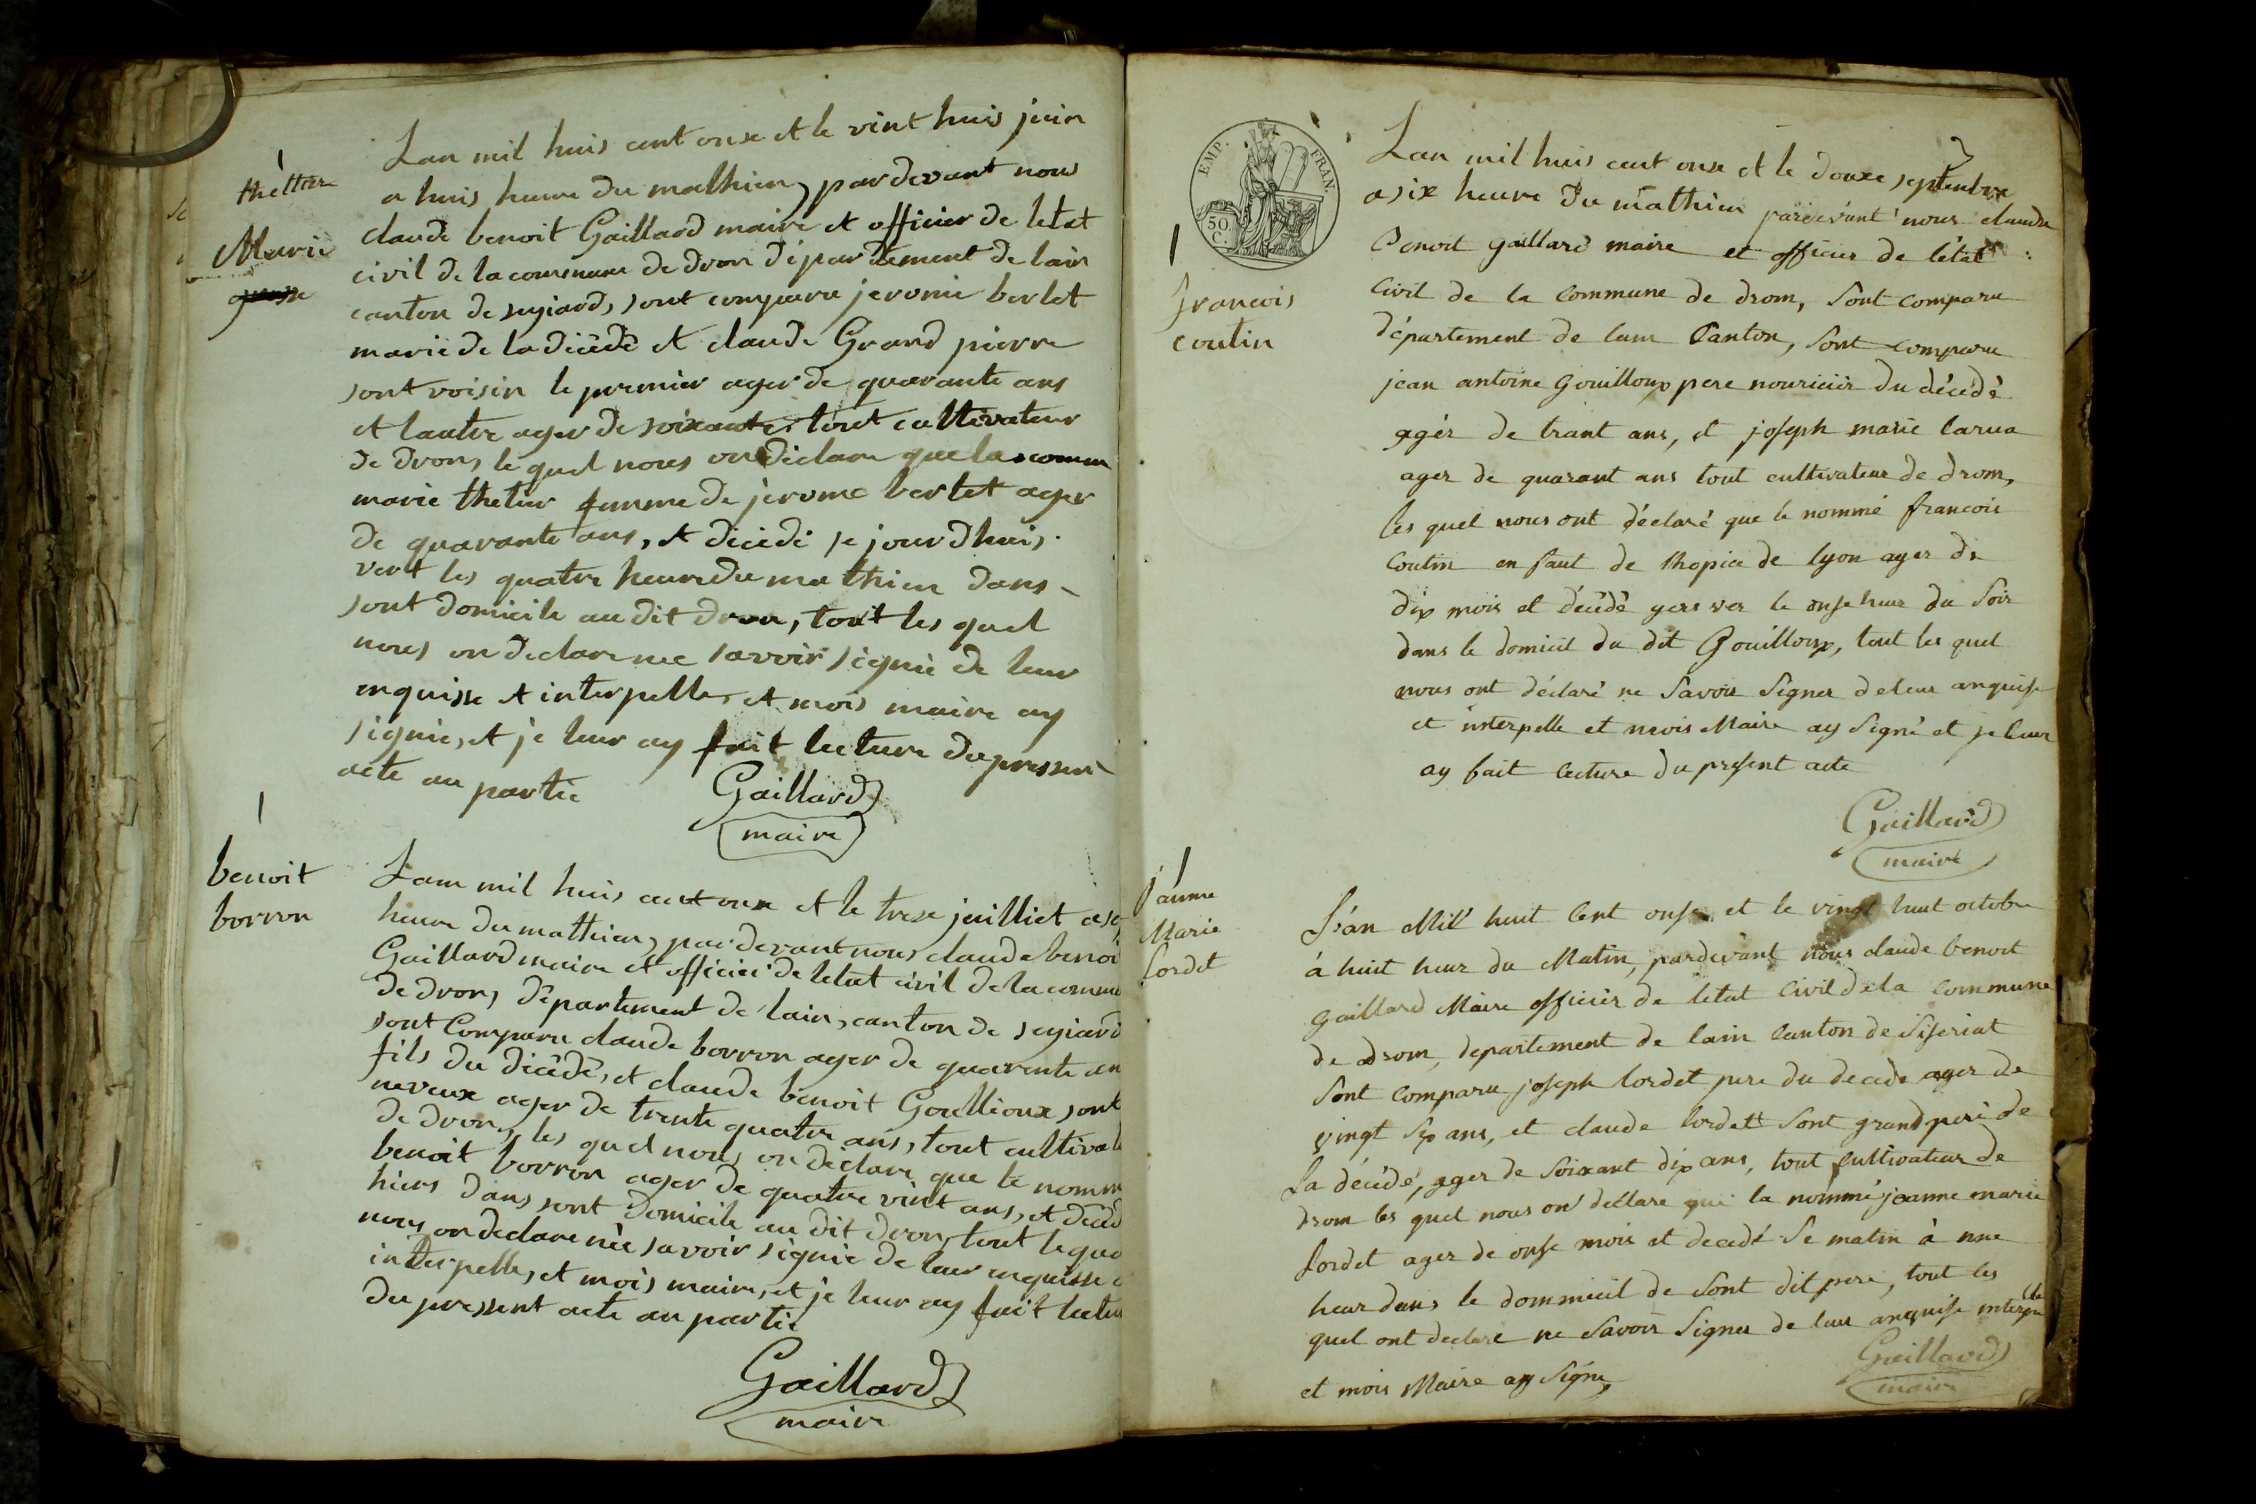 thettur
Marie
Lan mil huis cent onse et le vint huis juin
a huis heure du mathien, par devant nous
claude benoit Gaillard maire et officier de letat
civil de la commune de drom département de lain
canton de sejiard, sont comparu jerome berlet
marié de la décédé et claude Grand pierre
sont voisin le premier ager de quarante ans
et lautre ager de soixante, tout cultivateur
de drom, le quel nous on déclare que la comm
marie thetur femme de jerome berlet ager
de quarante ans, et décédé se jourdhuis
vert les quatre heure du mathien dans
sont domicile au dit drom, tout les quel
nous on declare nee savoir signié de leur
enquisse et interpelle, et mois maire ay
signié, et je leur ay fait lecture du pressent
acte au partie
Gaillard
maire
benoit
borron
Lan mil huis cent onse et le trese juilliet a se
heure du mathien, par devant nous claude benoi
Gaillard maire et officier de letat civil de la commu
de drom, département de lain, canton de sejiard
sont comparu claude borron ager de quarente an
fils du décédé, et claude benoit Goullioux sont
neveux ager de trente quatre ans, tout cultivat
de drom, les quel nous on déclare que le nomm
benoit borron ager de quatre vint ans, et décéd
hiers dans sont domicile au dit drom, tout le que
nous on declare nèe savoir signié de leur enquisse e
interpelle, et mois maire, et je leur ay fait lectur
du pressent acte au partie
Gaillard
maire
EMP. FRAN.
50 C.
francois
coutin
Lan mil huis cent onse et le douxe septembre
a six heure du mathien pardevant nous claude
Benoit gaillard maire et officier de létat
civil de la commune de drom, sont comparu
département de lain Canton, sont comparu
jean antoine Gouilloux pere nouricier du décédé
agér de trant ans, et joseph marie larua
ager de quarant ans tout cultivateur de drom,
les quel nous ont déclaré que le nommé francois
coutin enfant de lhopice de lyon ager de
dix mois et décédé yers ver le onse heur du soir
dans le domicil du dit Gouilloux, tout les quel
nous ont déclaré ne savoir signer de leur anquise
et interpelle et mois Maire ay signé et je leur
ay fait lecture du present acte
Gaillard
maire
jeanne
Marie
lordet
L'an Mill huit cent onse et le vingt huit octobre
á huit heur du Matin, pardevant nous claude benoit
gaillard Maire officier de letat civil de la commune
de drom, departement de lain canton de Siseriat
sont comparu joseph lordet pere du decede ager de
vingt six ans, et claude lordett sont grand peré de
la décédé, ager de soixant dix ans, tout cultivateur de
drom les quel nous on déclare que la nommé jeanne marie
lordet ager de onse mois et decedé se matin à une
heur dans le dommicil de sont dit pere, tout les
quel ont declare ne savoir signer de leur anquise interpelle
et mois Maire ay signe,
Gaillard
maire